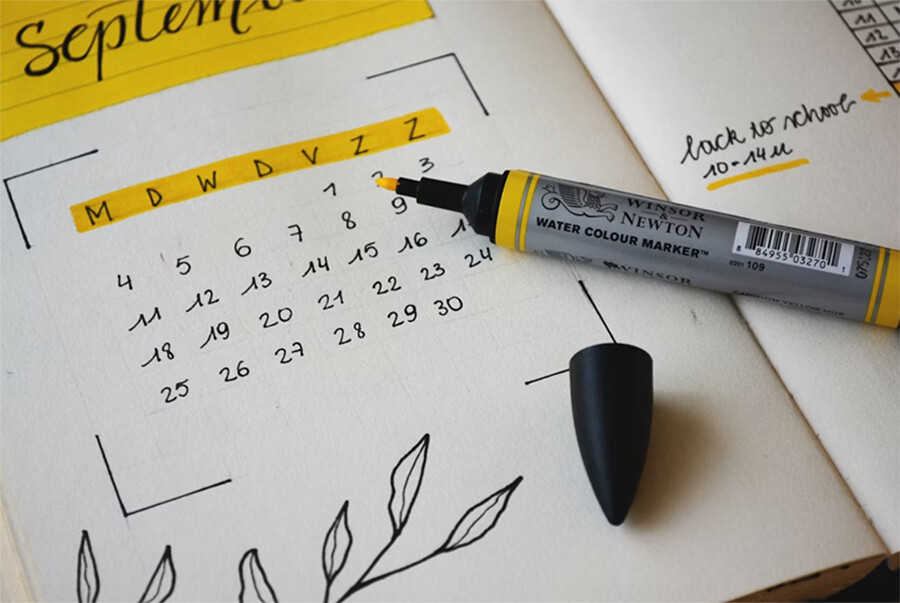 September
M D W D V Z Z
1 2 3
4 5 6 7 8 9
11 12 13 14 15 16
18 19 20 21 22 23 24
25 26 27 28 29 30
10
11
12
13
back to school
10-14u
WINSOR
&
NEWTON
WATER COLOUR MARKER™
8 84955 03270 1
0201 109
WINSOR